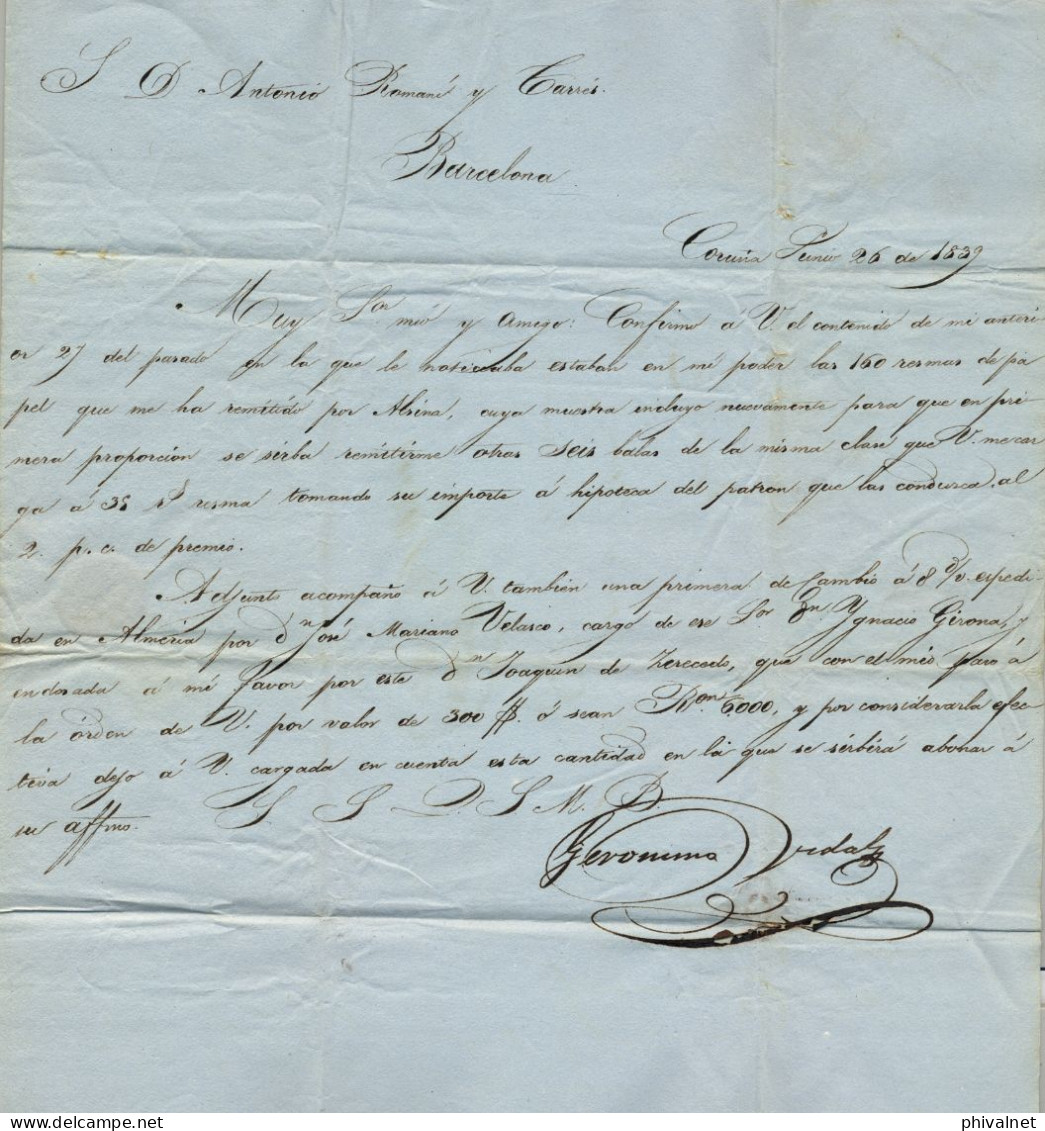 S D Antonio Romaní y Tarrés.
Barcelona
Coruña Junio 26 de 1839
Muy Sor mío y amigo: Confirmo á V. el contenido de mi anteri-
or 27 del pasado en la que le noticiaba estaban en mi poder las 160 resmas de pa
pel que me ha remitido por Alsina, cuya muestra incluyo nuevamente para que en pri
mera proporcion se sirba remitirme otras seis balas de la misma clase que V. me car
ga á 35 rs resma tomando su importe á hipoteca del patron que las condusca, al
2. p. c. de premio.
Adjunto acompaño á V. también una primera de Cambio á 8 d/v. espedi-
da en Almeria por Dn José Mariano Velasco, cargo de ese Sor Dn Ygnacio Girona, y
endosada á mi favor por este Dn Joaquin de Zerecedo, que con el mio paso á
la órden de V. por valor de 300 $. ó sean Ron. 6.000, y por considerarla efec
tiva dejo á V. cargada en cuenta esta cantidad en la que se sirbirá abonar á
su affmo. S. S. Q. S. M. B.
Geronimo Vidal
phivalnet